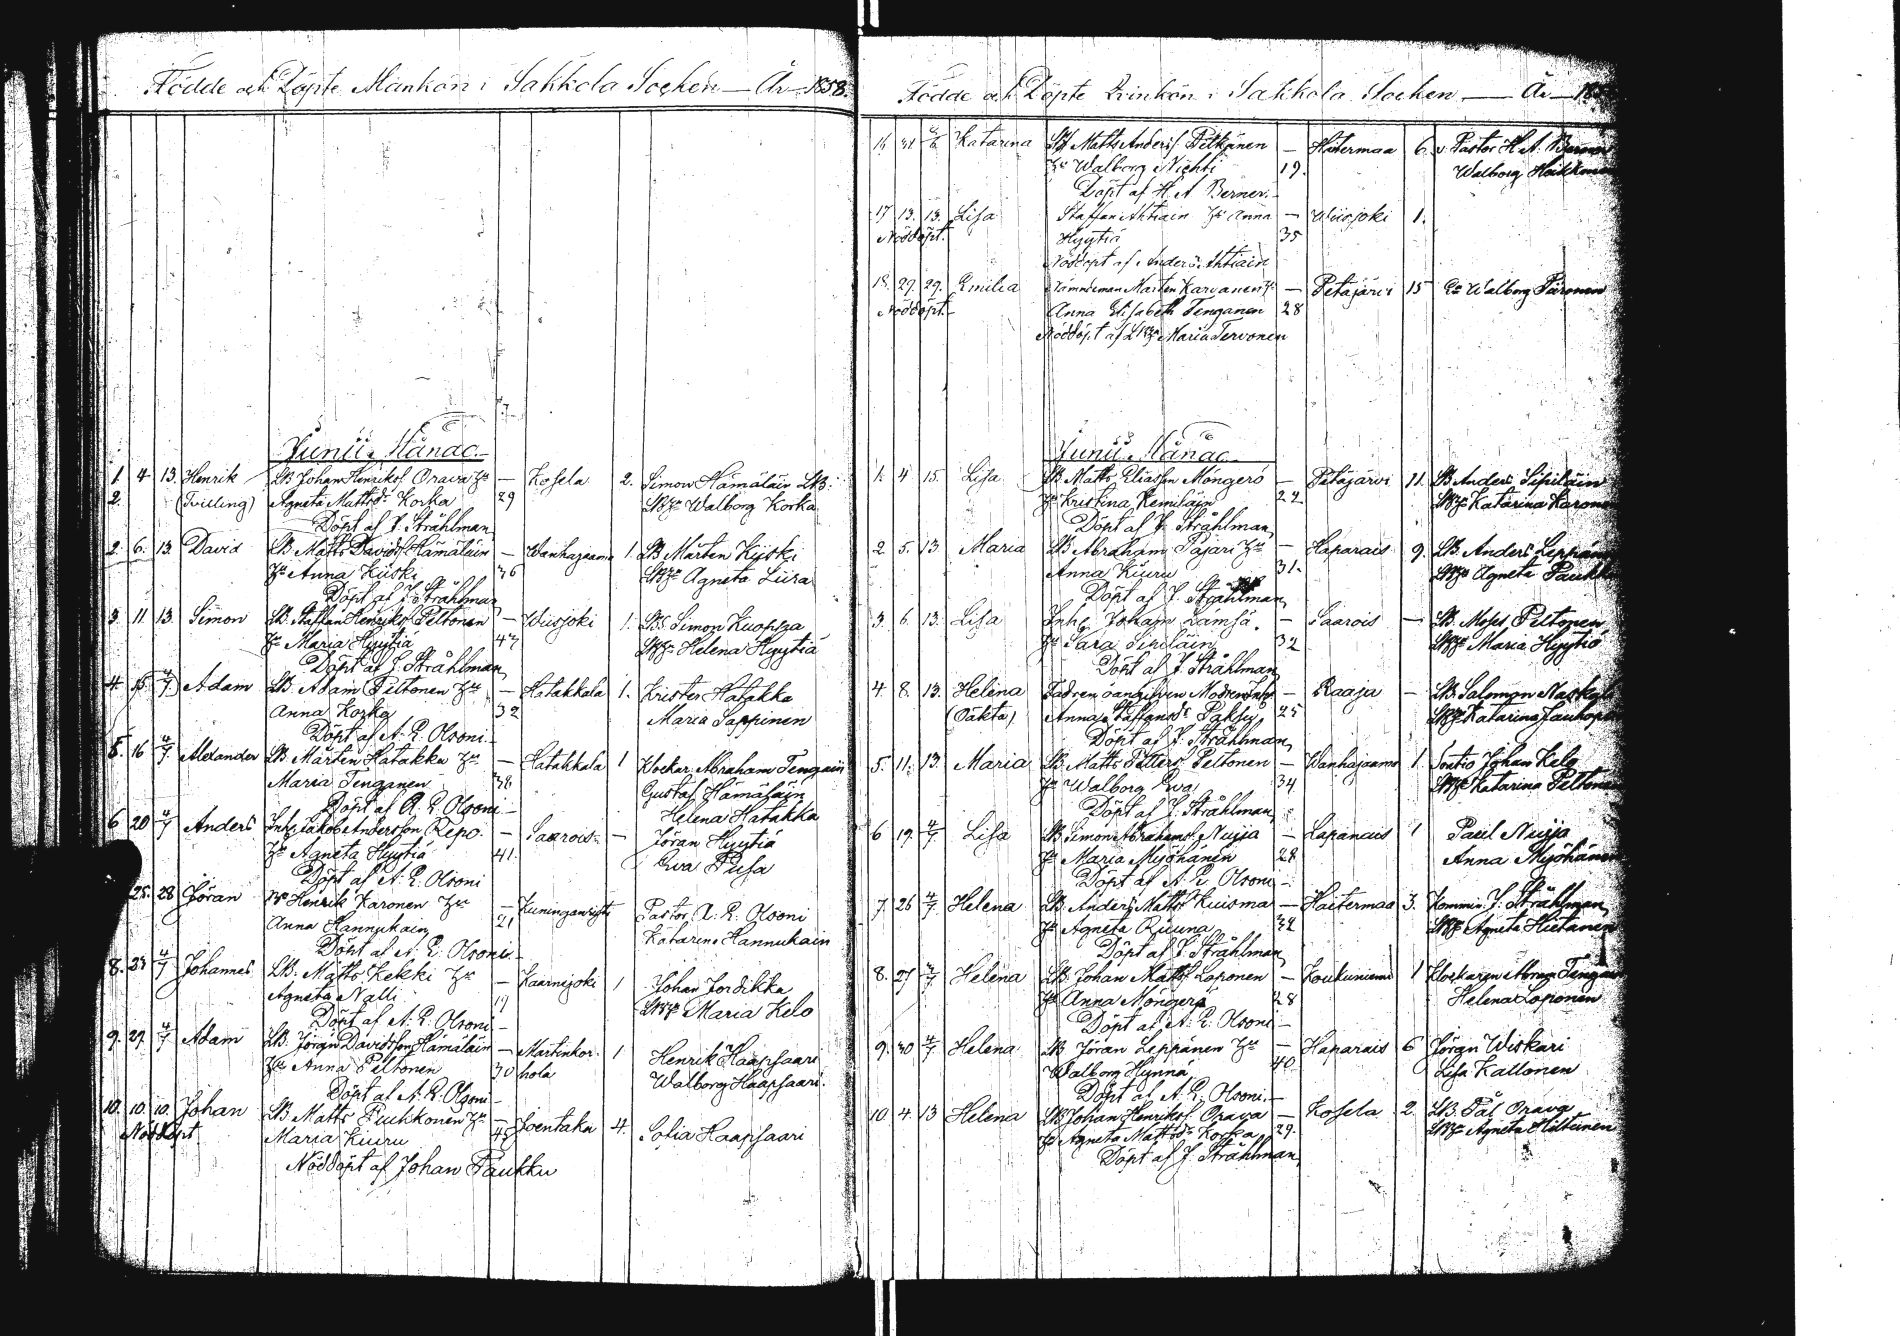 Födde och Döpte Mankön i Sakkola Socken — År 1858.
Junii Månad
1. 4 13. Henrik LB Johan Henriks. Orava Hu — Kosela 2. Simon Hämäläin LB.
2. (Tvilling) Agneta Mattsdr Korka 29 Walborg Korka
Döpt af J. Stråhlman
2. 6. 13 David LB Matts Davids. Hämäläin — Wanhajaama 1. LB Mårten Kiiski
Hu Anna Kiiski 36 Agneta Liira
Döpt af J. Stråhlman
3 11 13. Simon LB. Staffan Henriks. Peltonen — Wiisjoki 1. Simon Kuopza
Hu Maria Hyytiä 47 Helena Hyytiä
Döpt af J. Stråhlman
4. 15. 4/7 Adam LB. Adam Peltonen Hu — Hatakkala 1. Krister Hatakka
Anna Korka 32 Maria Sappinen
Döpt af A. E. Olsoni
5. 16 4/7 Alexander LB. Mårten Hatakka Hu — Hatakkala 1 Klockar. Abraham Tengain
Maria Tenganen 38 Gustaf Hämäläin
Döpt af A. E. Olsoni — Helena Hatakka
6 20 4/7 Anders Inh. Jakob Andersson Repo. — Saarois — Jöran Hyytiä
Hu Agneta Hyytiä 41. Eva Pusa
Döpt af A. E. Olsoni
25. 28 Jöran Henrik Karonen Hu — Pastor A. E. Olsoni
Anna Hannukain 21 Katarina Hannukain
Döpt af A. E. Olsoni
8. 4/7 Johannes LB. Matts Kekki Hu — Kaarnajoki 1 Johan Jordikka
Agneta Nalli 19 Maria Kelo
Döpt af A. E. Olsoni —
9. 29. 4/7 Adam LB. Jöran Davidsson Hämäläin — Martinkor- 1 Henrik Haapsaari
Hu Anna Peltonen 30 hola Walborg Haapsaari.
Döpt af A. E. Olsoni —
10. 10. 10. Johan LB Matts Puukkonen Hu — Joentaka 4. Sofia Haapsaari
Nöddöpt Maria Kuuru 45
Nöddöpt af Johan Paukku
Födde och Döpte Qvinkön i Sakkola Socken — År
16 31 Katarina Matts Anders. Pitkänen — Haitermaa 6. v. Pastor H. A. Berner
Hu Walborg Nichti 19. Walborg Heikkonen
Döpt af H. A. Berner. —
17 13. 13. Lisa Staffan Ahtiain Hu Anna — Wiisjoki 1.
Nöddöpt. Hyytiä 35
Nöddöpt af Anders Ahtiain
18. 29. 29. Emilia Nämndeman Mårten Karvanen Hu — Petäjärvi 15 Walborg Päronen
Nöddöpt. — Anna Elisabeth Tenganen 28
Nöddöpt af Maria Tervonen
Junii Månad
1. 4 15. Lisa LB Matts Eliasson Möngerö — Petäjärvi 11. LB Anders Sipiläin
Hu Kristina Remiläin 22. Katarina Karonen
Döpt af J. Stråhlman
2 5. 13. Maria LB Abraham Pajari Hu — Haparais 9. LB. Anders Leppänen
Anna Kiuru 31. Agneta Paukku
Döpt af J. Stråhlman
3 6. 13. Lisa Inh. Johan Lamsä. — Saarois — LB. Moses Peltonen
Hu Sara Sipiläin 32 Maria Hyytiä
Döpt af J. Stråhlman
4 8. 13. Helena Fadren oangifven Modren Inh. — Raaja — LB. Salomon Naskali
(Oäkta) Anna Staffansdr Paksu 25 Katarina
Döpt af J. Stråhlman
5. 11. 13. Maria LB Matts Petters. Peltonen — Wanhajaama 1 Sontio Johan Kelo
Hu Walborg Eva 34 Katarina Peltonen
Döpt af J. Stråhlman
6 19. 4/7 Lisa LB Simon Abrahams. Nuija — Lapanais 1 Paul Nuija
Hu Maria Myöhänen 28 Anna Myöhänen
Döpt af A. E. Olsoni —
7. 26 4/7 Helena LB. Anders Matts. Kuisma — Haitermaa 3. Kommin. J. Stråhlman
Hu Agneta Riuuna 32 Agneta Hietanen
Döpt af J. Stråhlman
8. 27 4/7 Helena LB. Johan Matts. Loponen — Koukuniemi 1 Klockaren Abram Tengain
Hu Anna Möngerö 28 Helena Loponen
Döpt af A. E. Olsoni —
9. 30 4/7 Helena LB Jöran Leppänen Hu — Haparais 6 Jöran Wiskari
Walborg Hynna 40 Lisa Kallonen
Döpt af A. E. Olsoni. —
10. 4. 13 Helena LB Johan Henriks. Orava — Kosela 2. LB. Pål Orava
Hu Agneta Mattsdr Korka 29. Agneta Hiltunen
Döpt af J. Stråhlman